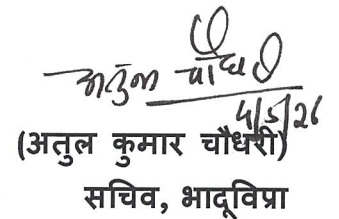 अतुल चौधरी
5/5/26
(अतुल कुमार चौधरी)
सचिव, भादूविप्रा